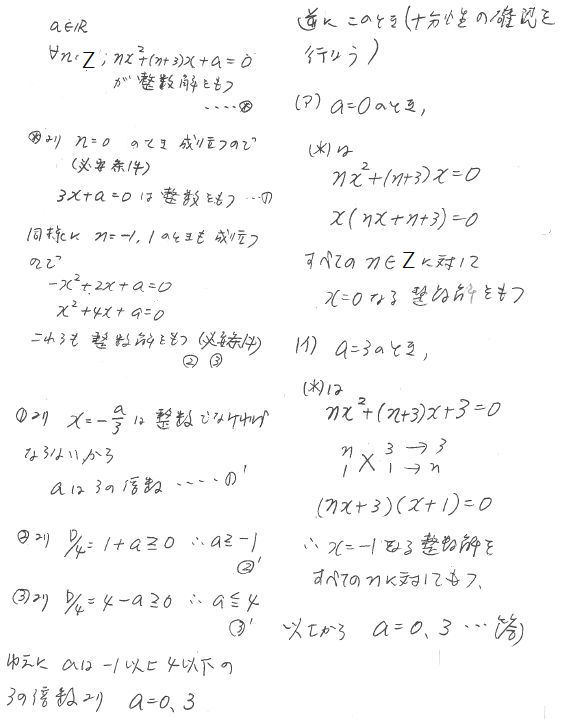 a∈ℝ
∀n∈Z; nx²+(n+3)x+a=0
が整数解をもつ
‥‥※
※より n=0 のときも成り立つので
(必要条件)
3x+a=0 は整数をもつ…①
同様に n=-1, 1のときも成り立つ
ので
-x²+2x+a=0
x²+4x+a=0
これらも整数解をもつ(必要条件)
② ③
①より x=-a/3 は整数でなければ
ならないから
aは3の倍数 ‥‥①'
②より D/4=1+a≧0 ∴a≧-1
②'
③より D/4=4-a≧0 ∴a≦4
③'
ゆえに aは-1以上4以下の
3の倍数より a=0、3
逆に このとき(十分性の確認を
行なう)
(ア) a=0のとき,
(*)は
nx²+(n+3)x=0
x(nx+n+3)=0
すべてのn∈Zに対して
x=0なる整数解をもつ
(イ) a=3のとき,
(*)は
nx²+(n+3)x+3=0
n 3→3
1 × 1→n
(nx+3)(x+1)=0
∴x=-1なる整数解を
すべてのnに対してもつ、
以上から a=0、3…(答)